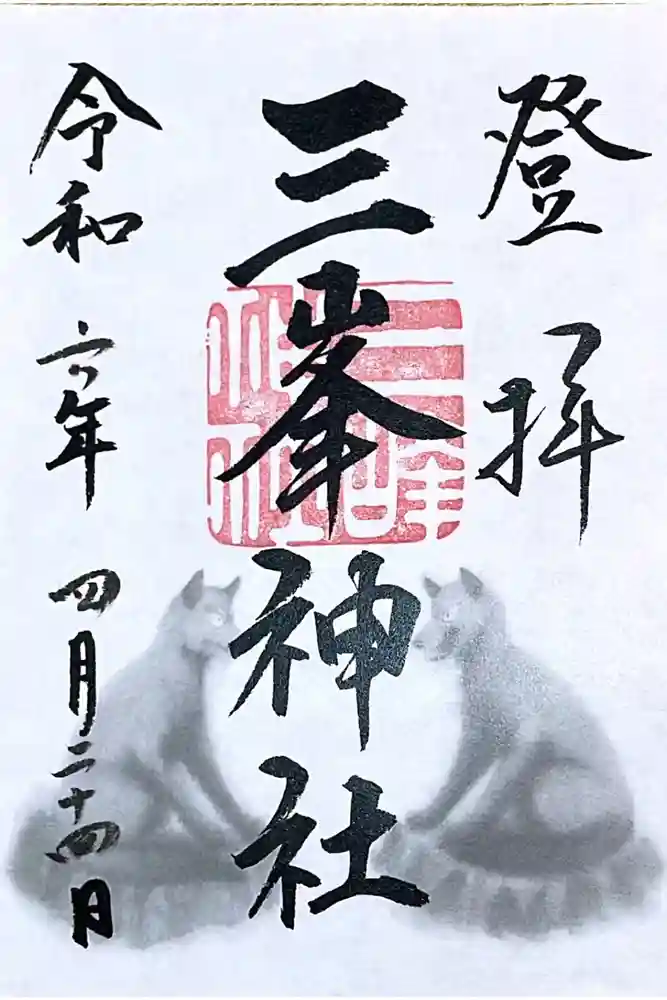 登拝
三峯神社
令和六年四月二十四日
三峰神社